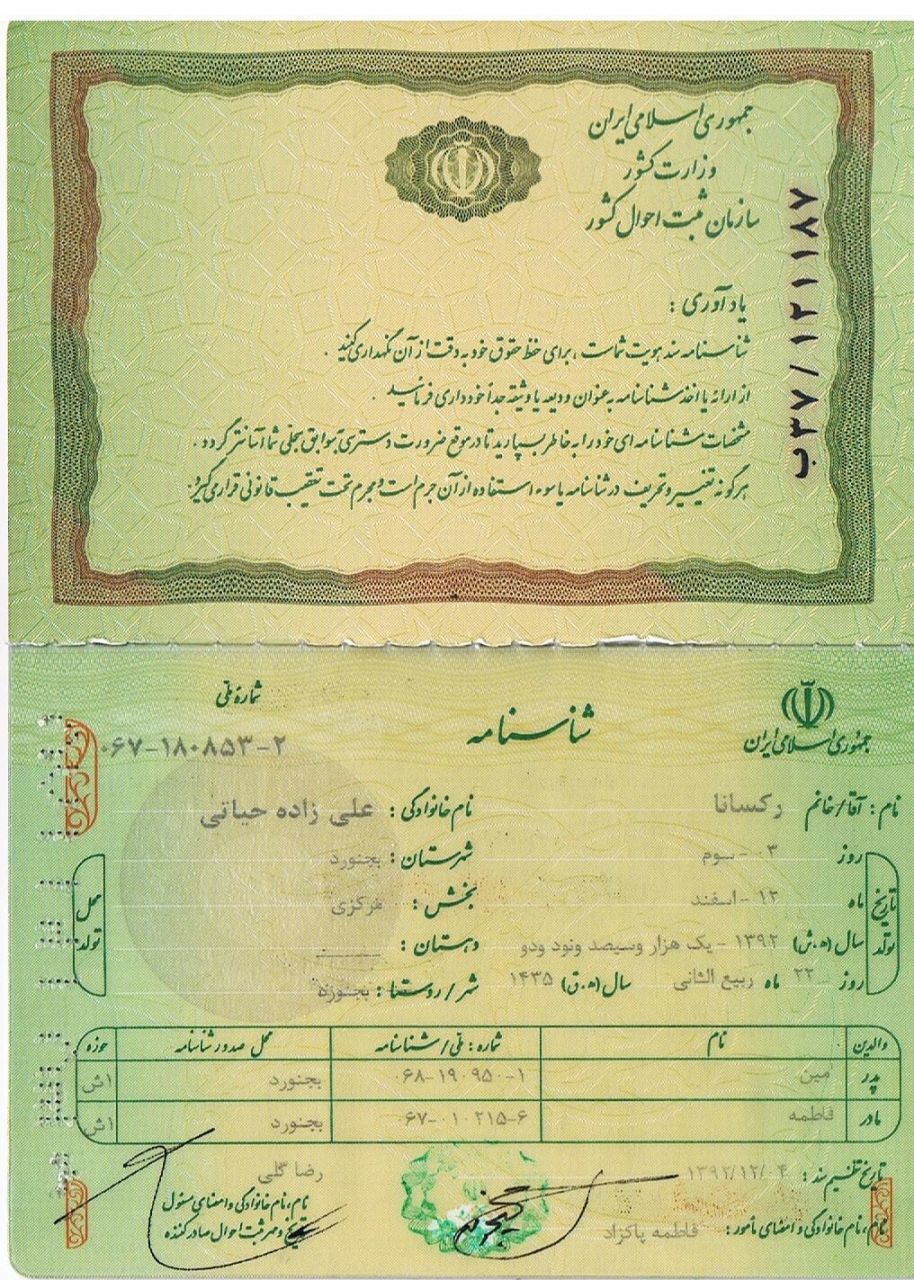 جمهوری اسلامی ایران
وزارت کشور
سازمان ثبت احوال کشور
ب۳۷/۱۲۱۱۸۷
یادآوری :
شناسنامه سند هویت شماست ، برای حفظ حقوق خود به دقت از آن نگهداری کنید .
از ارائه یا اخذ شناسنامه به عنوان ودیعه یا وثیقه جداً خودداری فرمائید .
مشخصات شناسنامه ای خود را به خاطر بسپارید تا در موقع ضرورت دسترسی به سوابق سجلی شما آسانتر گردد .
هرگونه تغییر و تحریف در شناسنامه یا سوء استفاده از آن جرم است و مجرم تحت تعقیب قانونی قرار می گیرد.
جمهوری اسلامی ایران
شناسنامه
شماره ملی
۰۶۷-۱۸۰۸۵۳-۲
نام : آقا/خانم رکسانا نام خانوادگی : علی زاده حیاتی
تاریخ تولد
روز ۰۳ - سوم
ماه ۱۲ - اسفند
سال (ه.ش) ۱۳۹۲ - یک هزار وسیصد ونود ودو
روز ۲۲ ماه ربیع الثانی سال (ه.ق) ۱۴۳۵
محل تولد
شهرستان : بجنورد
بخش : مرکزی
دهستان : ـــــــ
شهر/روستا : بجنورد
والدین نام شماره : ملی/شناسنامه محل صدور شناسنامه حوزه
پدر امین ۰۶۸-۱۹۰۹۵۰-۱ بجنورد اش
مادر فاطمه ۰۶۷-۰۱۰۲۱۵-۶ بجنورد اش
تاریخ تنظیم سند : ۱۳۹۲/۱۲/۰۴
نام، نام خانوادگی و امضای مأمور : فاطمه پاکزاد
رضا گلی
نام، نام خانوادگی و امضای مسئول
تاریخ و مهر ثبت احوال صادر کننده